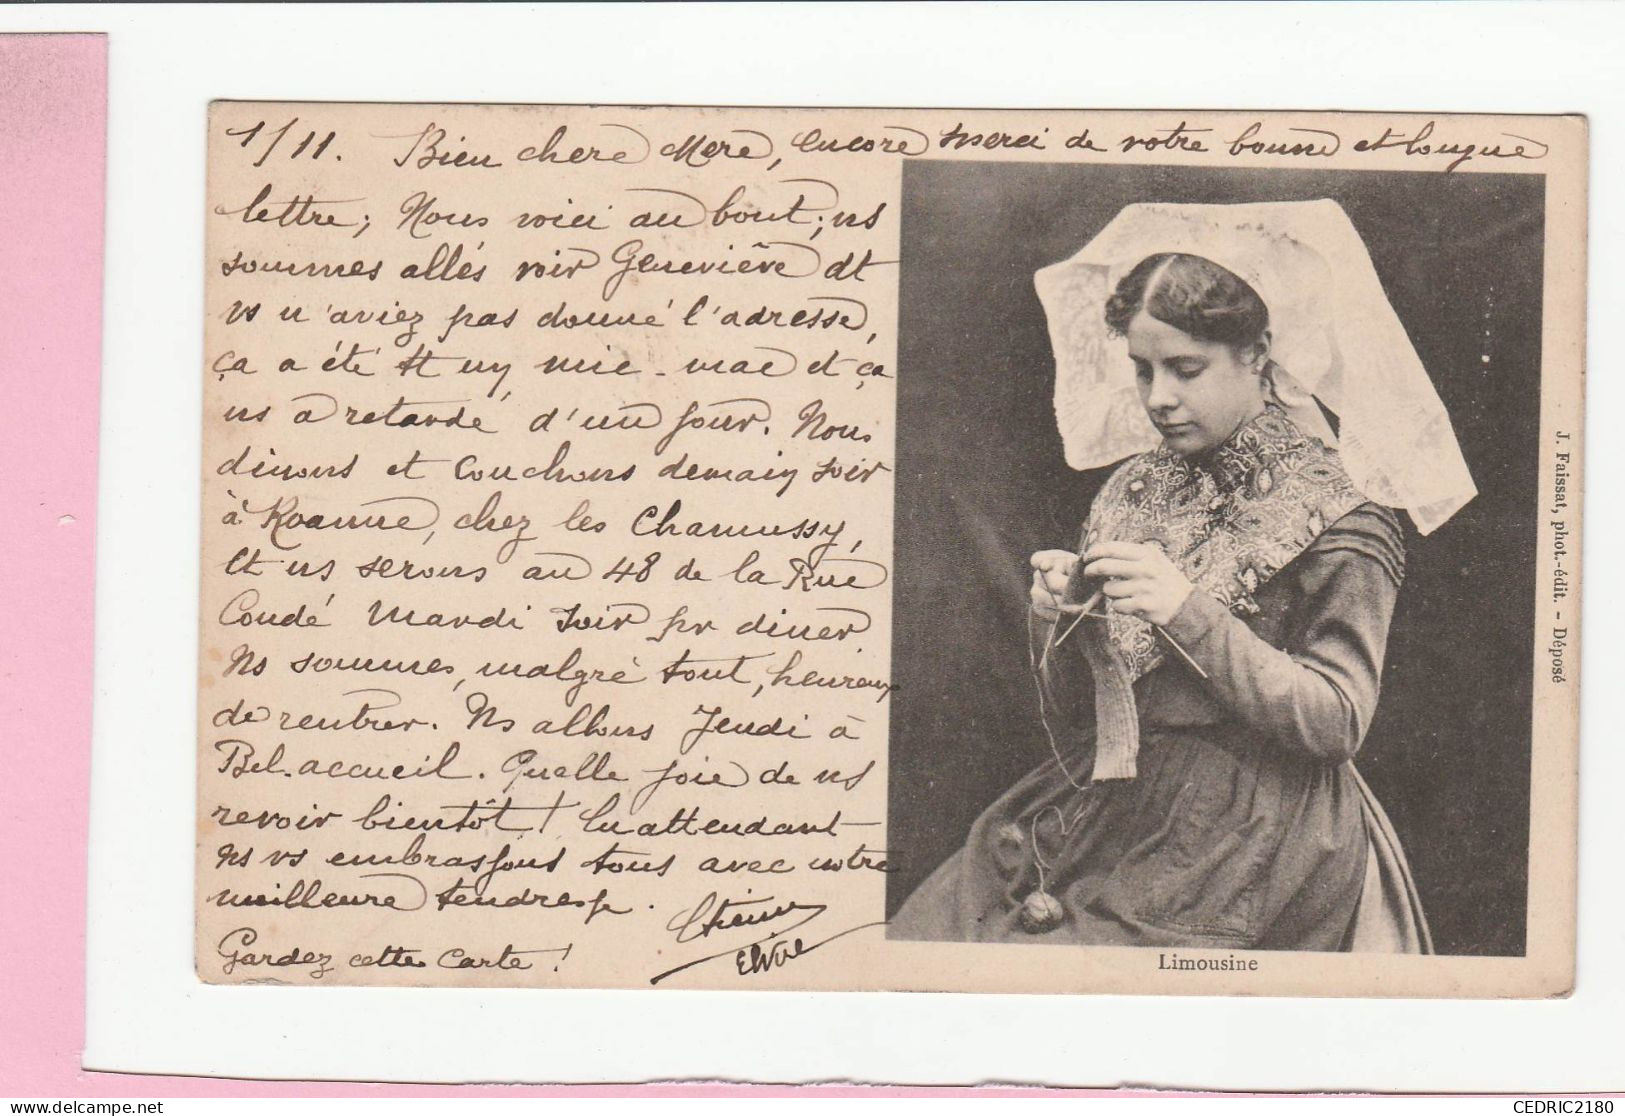 1/11. Bien chere Mere, encore merci de votre bonne et longue
lettre; Nous voici au bout; ns
sommes allés voir Geneviève dt
vs n'aviez pas donné l'adresse,
ça a été tt un mic-mac et ça
ns a retardé d'un jour. Nous
dinons et couchons demain soir
à Roanne, chez les Chamussy,
et ns serons au 48 de la Rue
Condé Mardi soir pr diner
Ns sommes, malgré tout, heureux
de rentrer. Ns allons Jeudi à
Bel-accueil. Quelle joie de vs
revoir bientôt! En attendant
ns vs embrassons tous avec notre
meilleure tendresse.
Etienne
Elvire
Gardez cette carte!
Limousine
J. Faissat, phot.-édit. - Déposé
CEDRIC2180